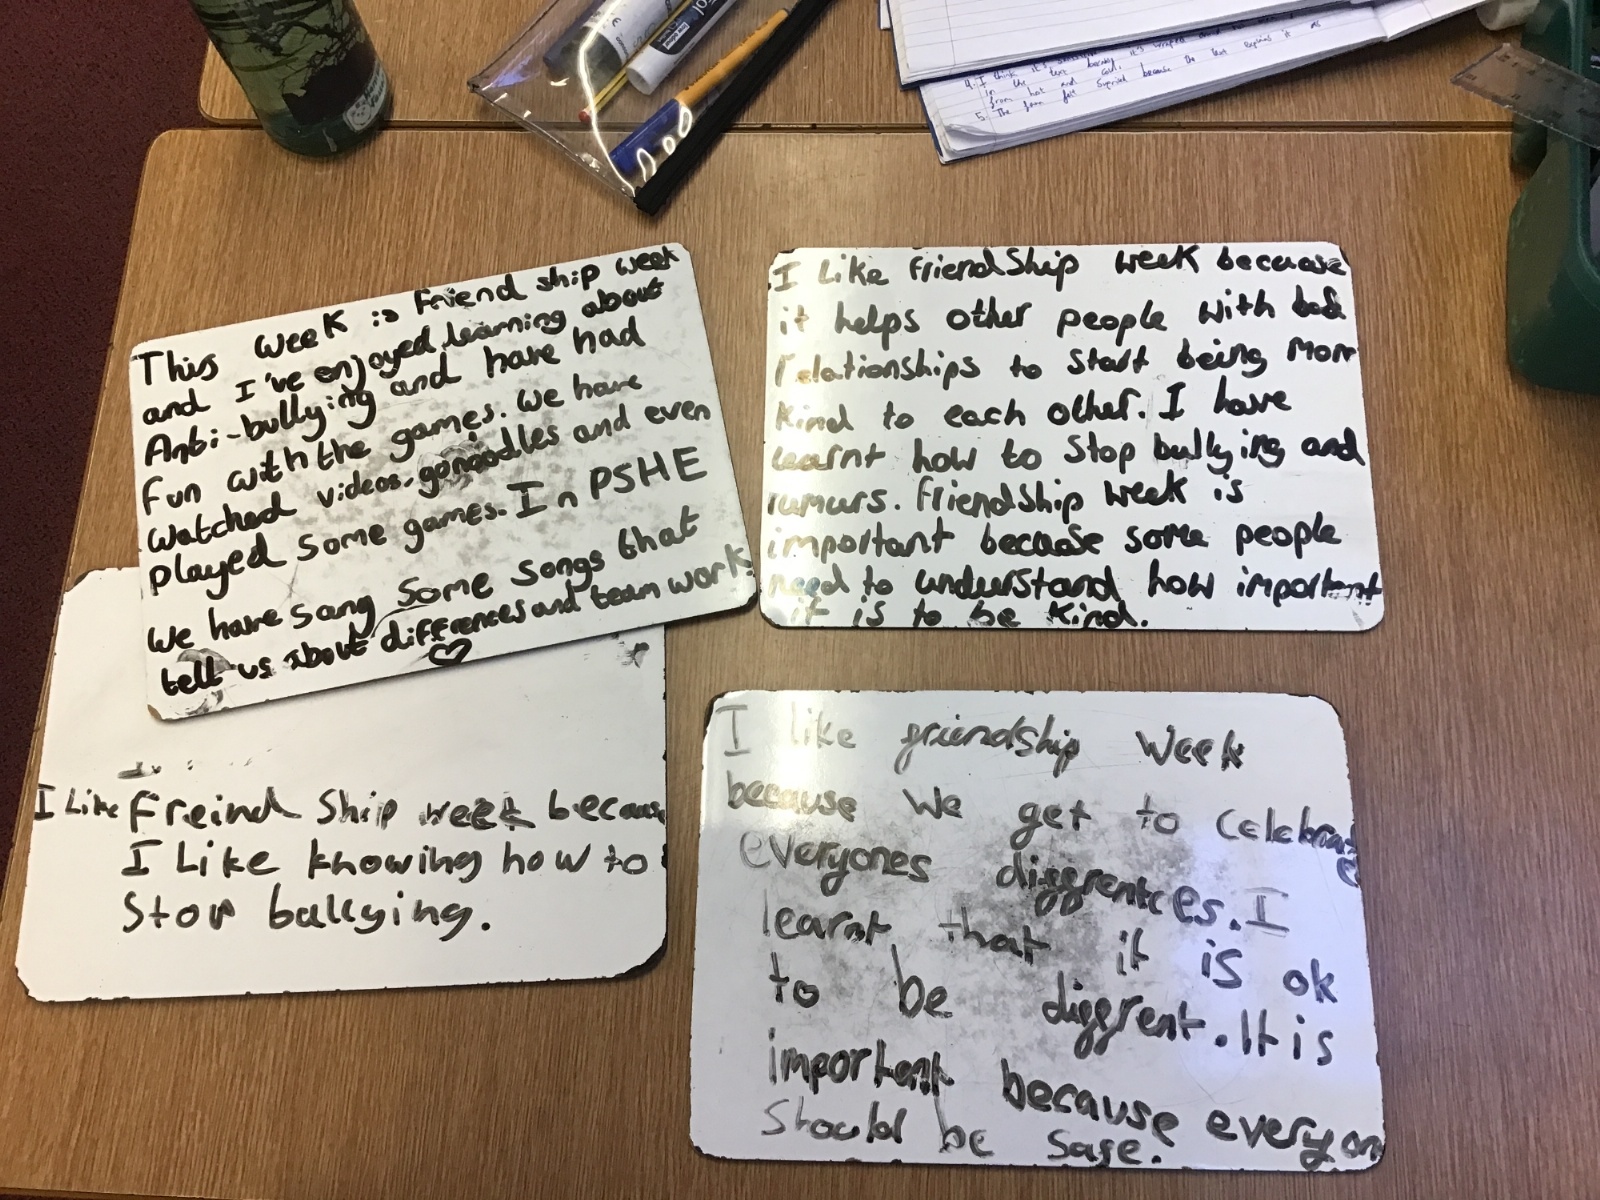 This week is Friend ship week
and I've enjoyed learning about
Anti-bullying and have had
fun with the games. We have
watched videos, gonoodles and even
played some games. In PSHE
we have sang some songs that
tell us about differences and team work.
I Like friendShip week because
it helps other people with bad
relationships to start being more
kind to each other. I have
learnt how to stop bullying and
rumurs. friendship week is
important because some people
need to understand how important
it is to be kind.
I Like Freind Ship week because
I Like knowing how to
Stop bullying.
I like friendship week
because we get to celebrate
everyones diffrentces. I
learnt that it is ok
to be diffrent. It is
important because everyone
should be safe.
4. I think it's
in the text
from hot and
5. The farm felt because the text explains it as